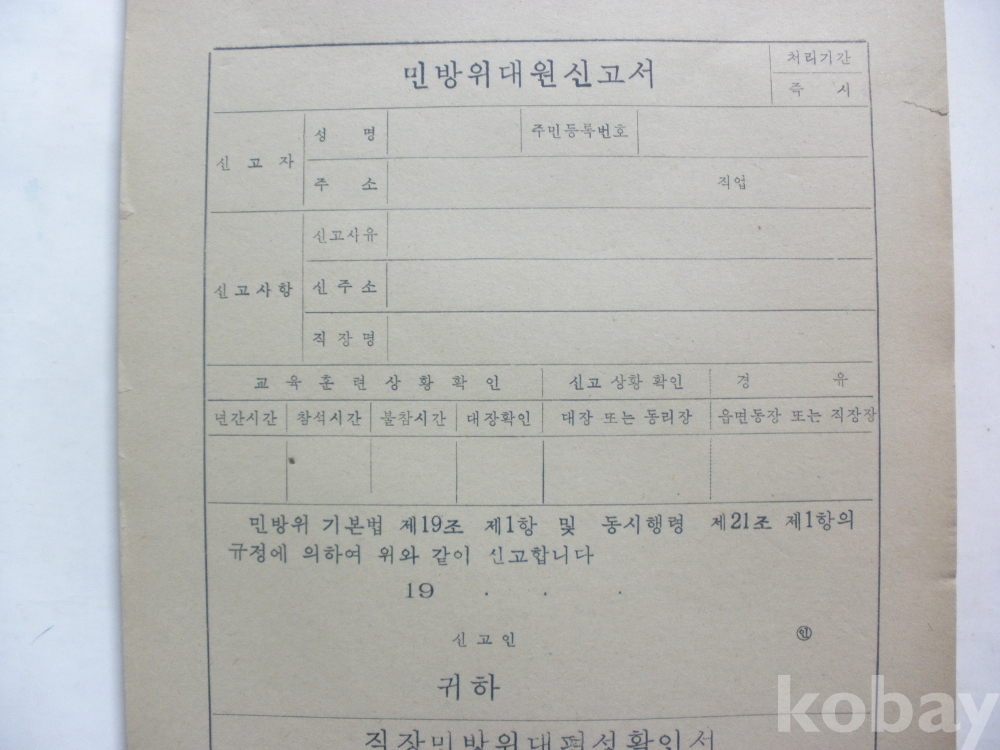 민방위대원신고서
처리기간
즉 시
신고자
성 명
주민등록번호
주 소
직업
신고사항
신고사유
신주소
직장명
교육훈련상황확인
신고 상황 확인
경 유
년간시간 참석시간 불참시간 대장확인 대장 또는 동리장 읍면동장 또는 직장장
민방위 기본법 제19조 제1항 및 동시행령 제21조 제1항의
규정에 의하여 위와 같이 신고합니다
19 . . .
신고인 ㊞
귀하
직장민방위대편성확인서
kobay